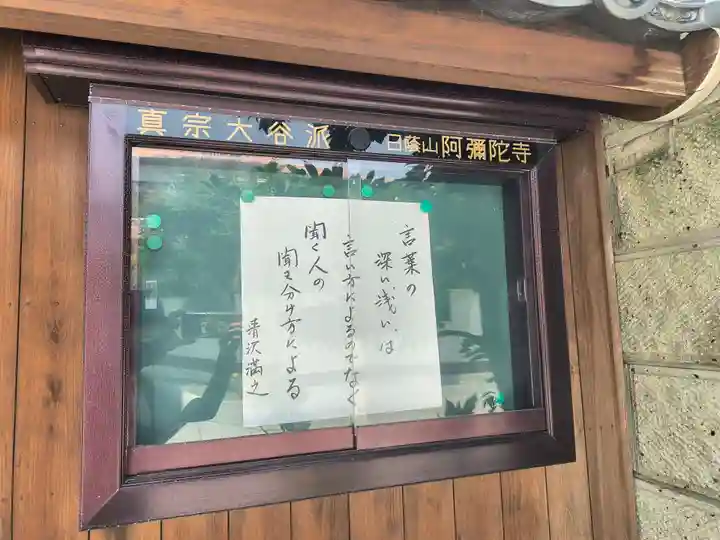 真宗大谷派
日蔭山 阿彌陀寺
言葉の
深い、浅い、は
言い方によるのでなく
聞く人の
聞き分け方による
清沢満之